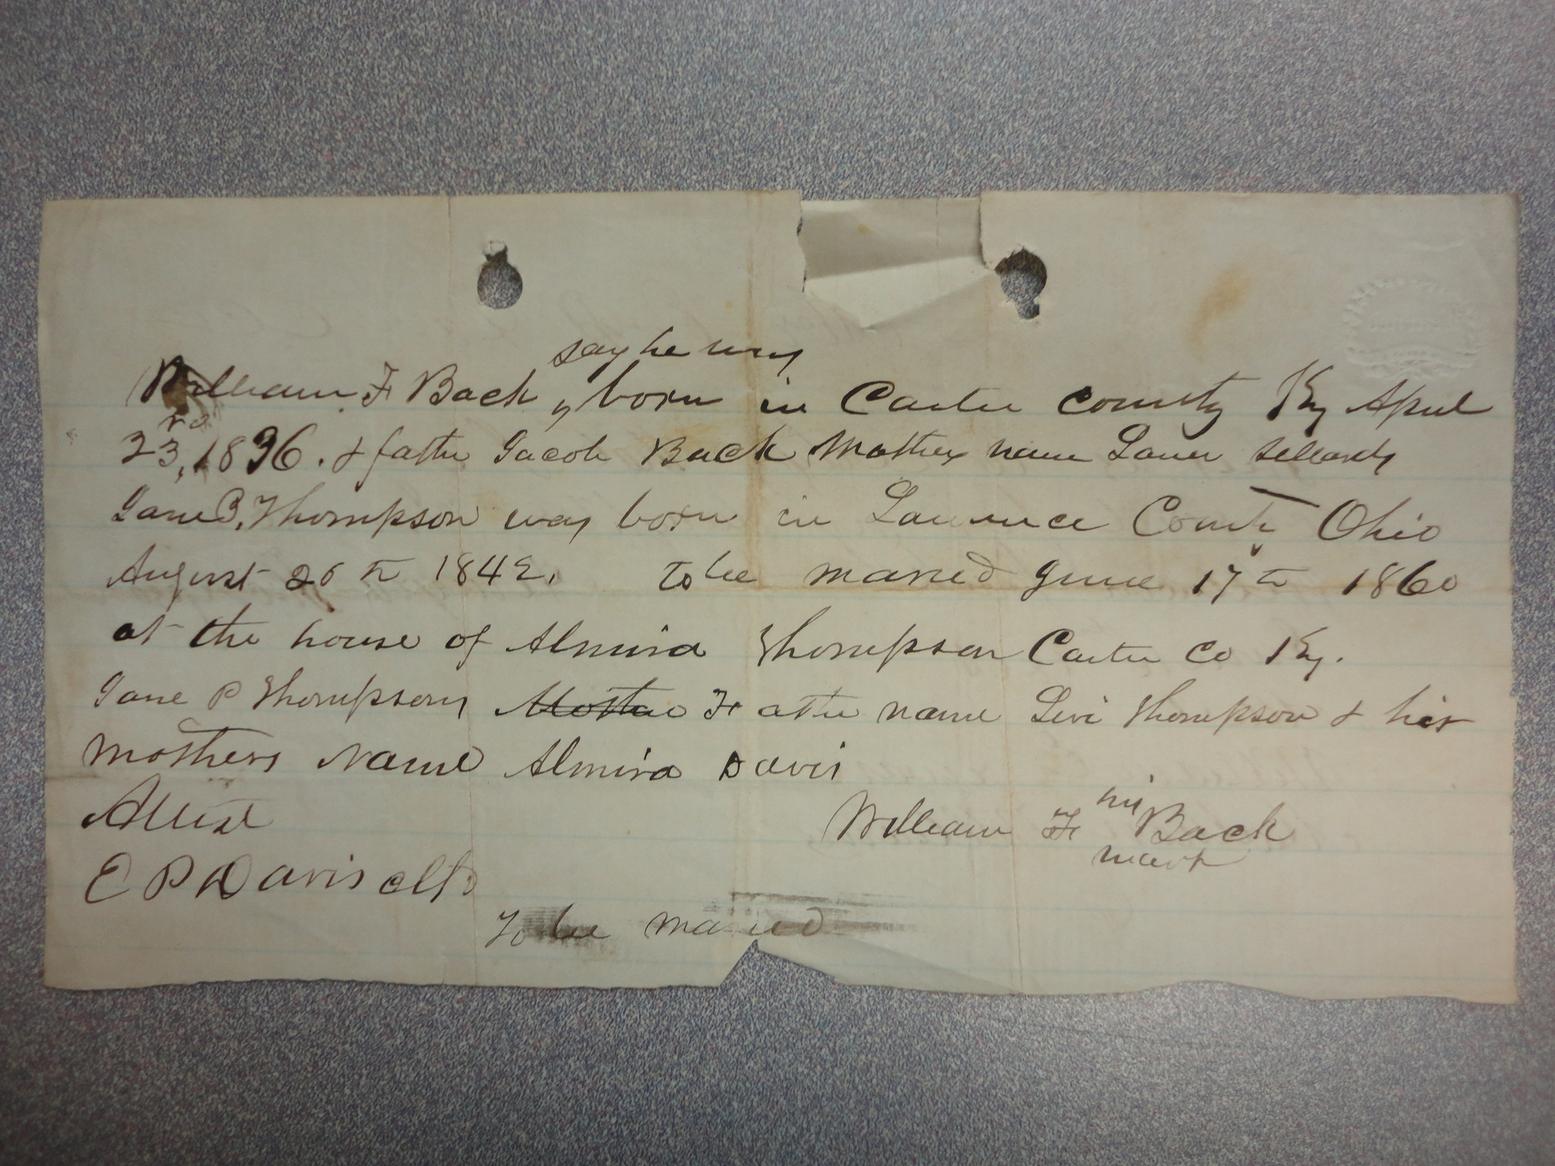 say he was
William F Back born in Carter county Ky April
23rd, 1836. & father Jacob Back Mothers name Laner Sellards
Jane P. Thompson was born in Lawrence County Ohio
August 26th 1842. to be maried June 17th 1860
at the house of Almira Thompson Carter Co Ky.
Jane P Thompson Mother Father name Levi Thompson & her
mothers Name Almira Davis
Attest
William F his Back
mark
E P Davis clk
To be maried